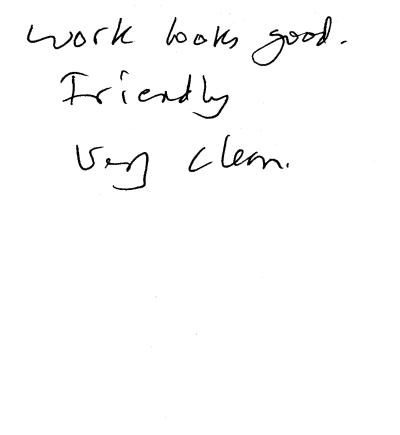 work looks good.
Friendly
Very clean.